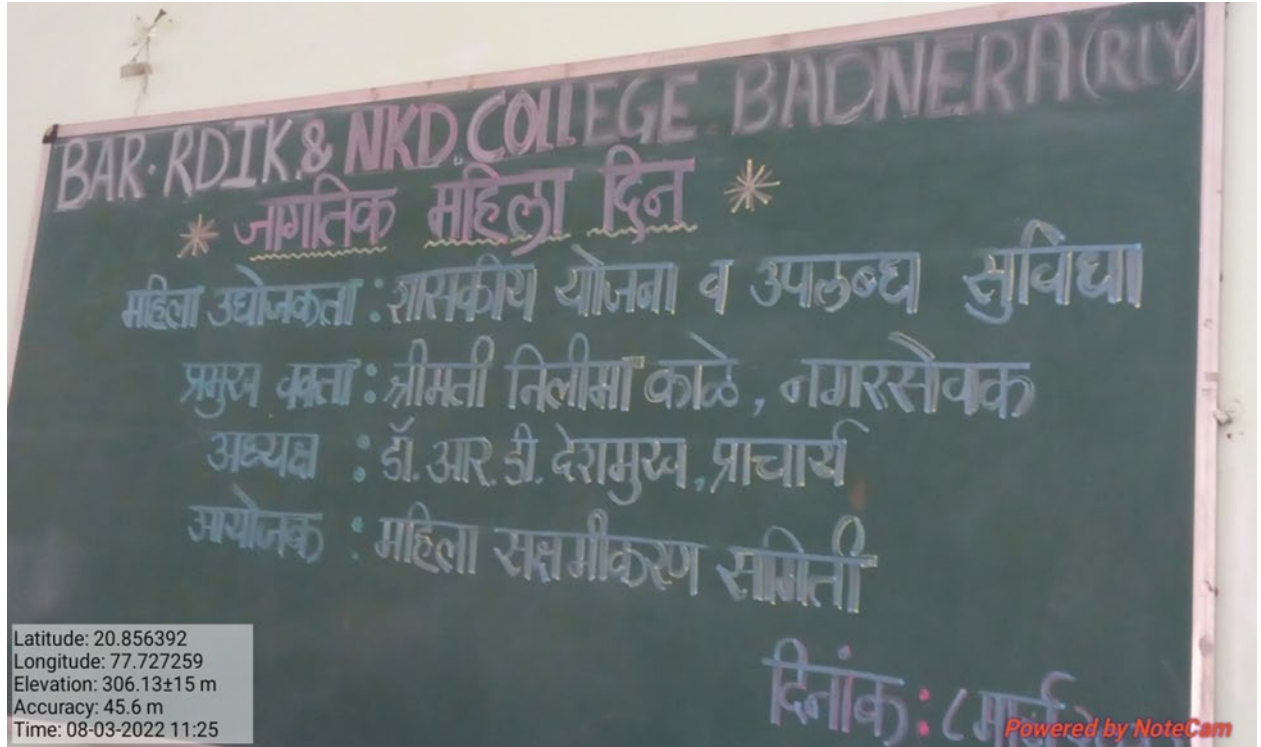 BAR. RDIK & NKD. COLLEGE BADNERA (RLY)
* जागतिक महिला दिन *
महिला उद्योजकता : शासकीय योजना व उपलब्ध सुविधा
प्रमुख वक्ता : श्रीमती निलीमा काळे, नगरसेवक
अध्यक्ष : डॉ. आर. डी. देशमुख, प्राचार्य
आयोजक : महिला सक्षमीकरण समिती
दिनांक : ८ मार्च
Latitude: 20.856392
Longitude: 77.727259
Elevation: 306.13±15 m
Accuracy: 45.6 m
Time: 08-03-2022 11:25
Powered by NoteCam